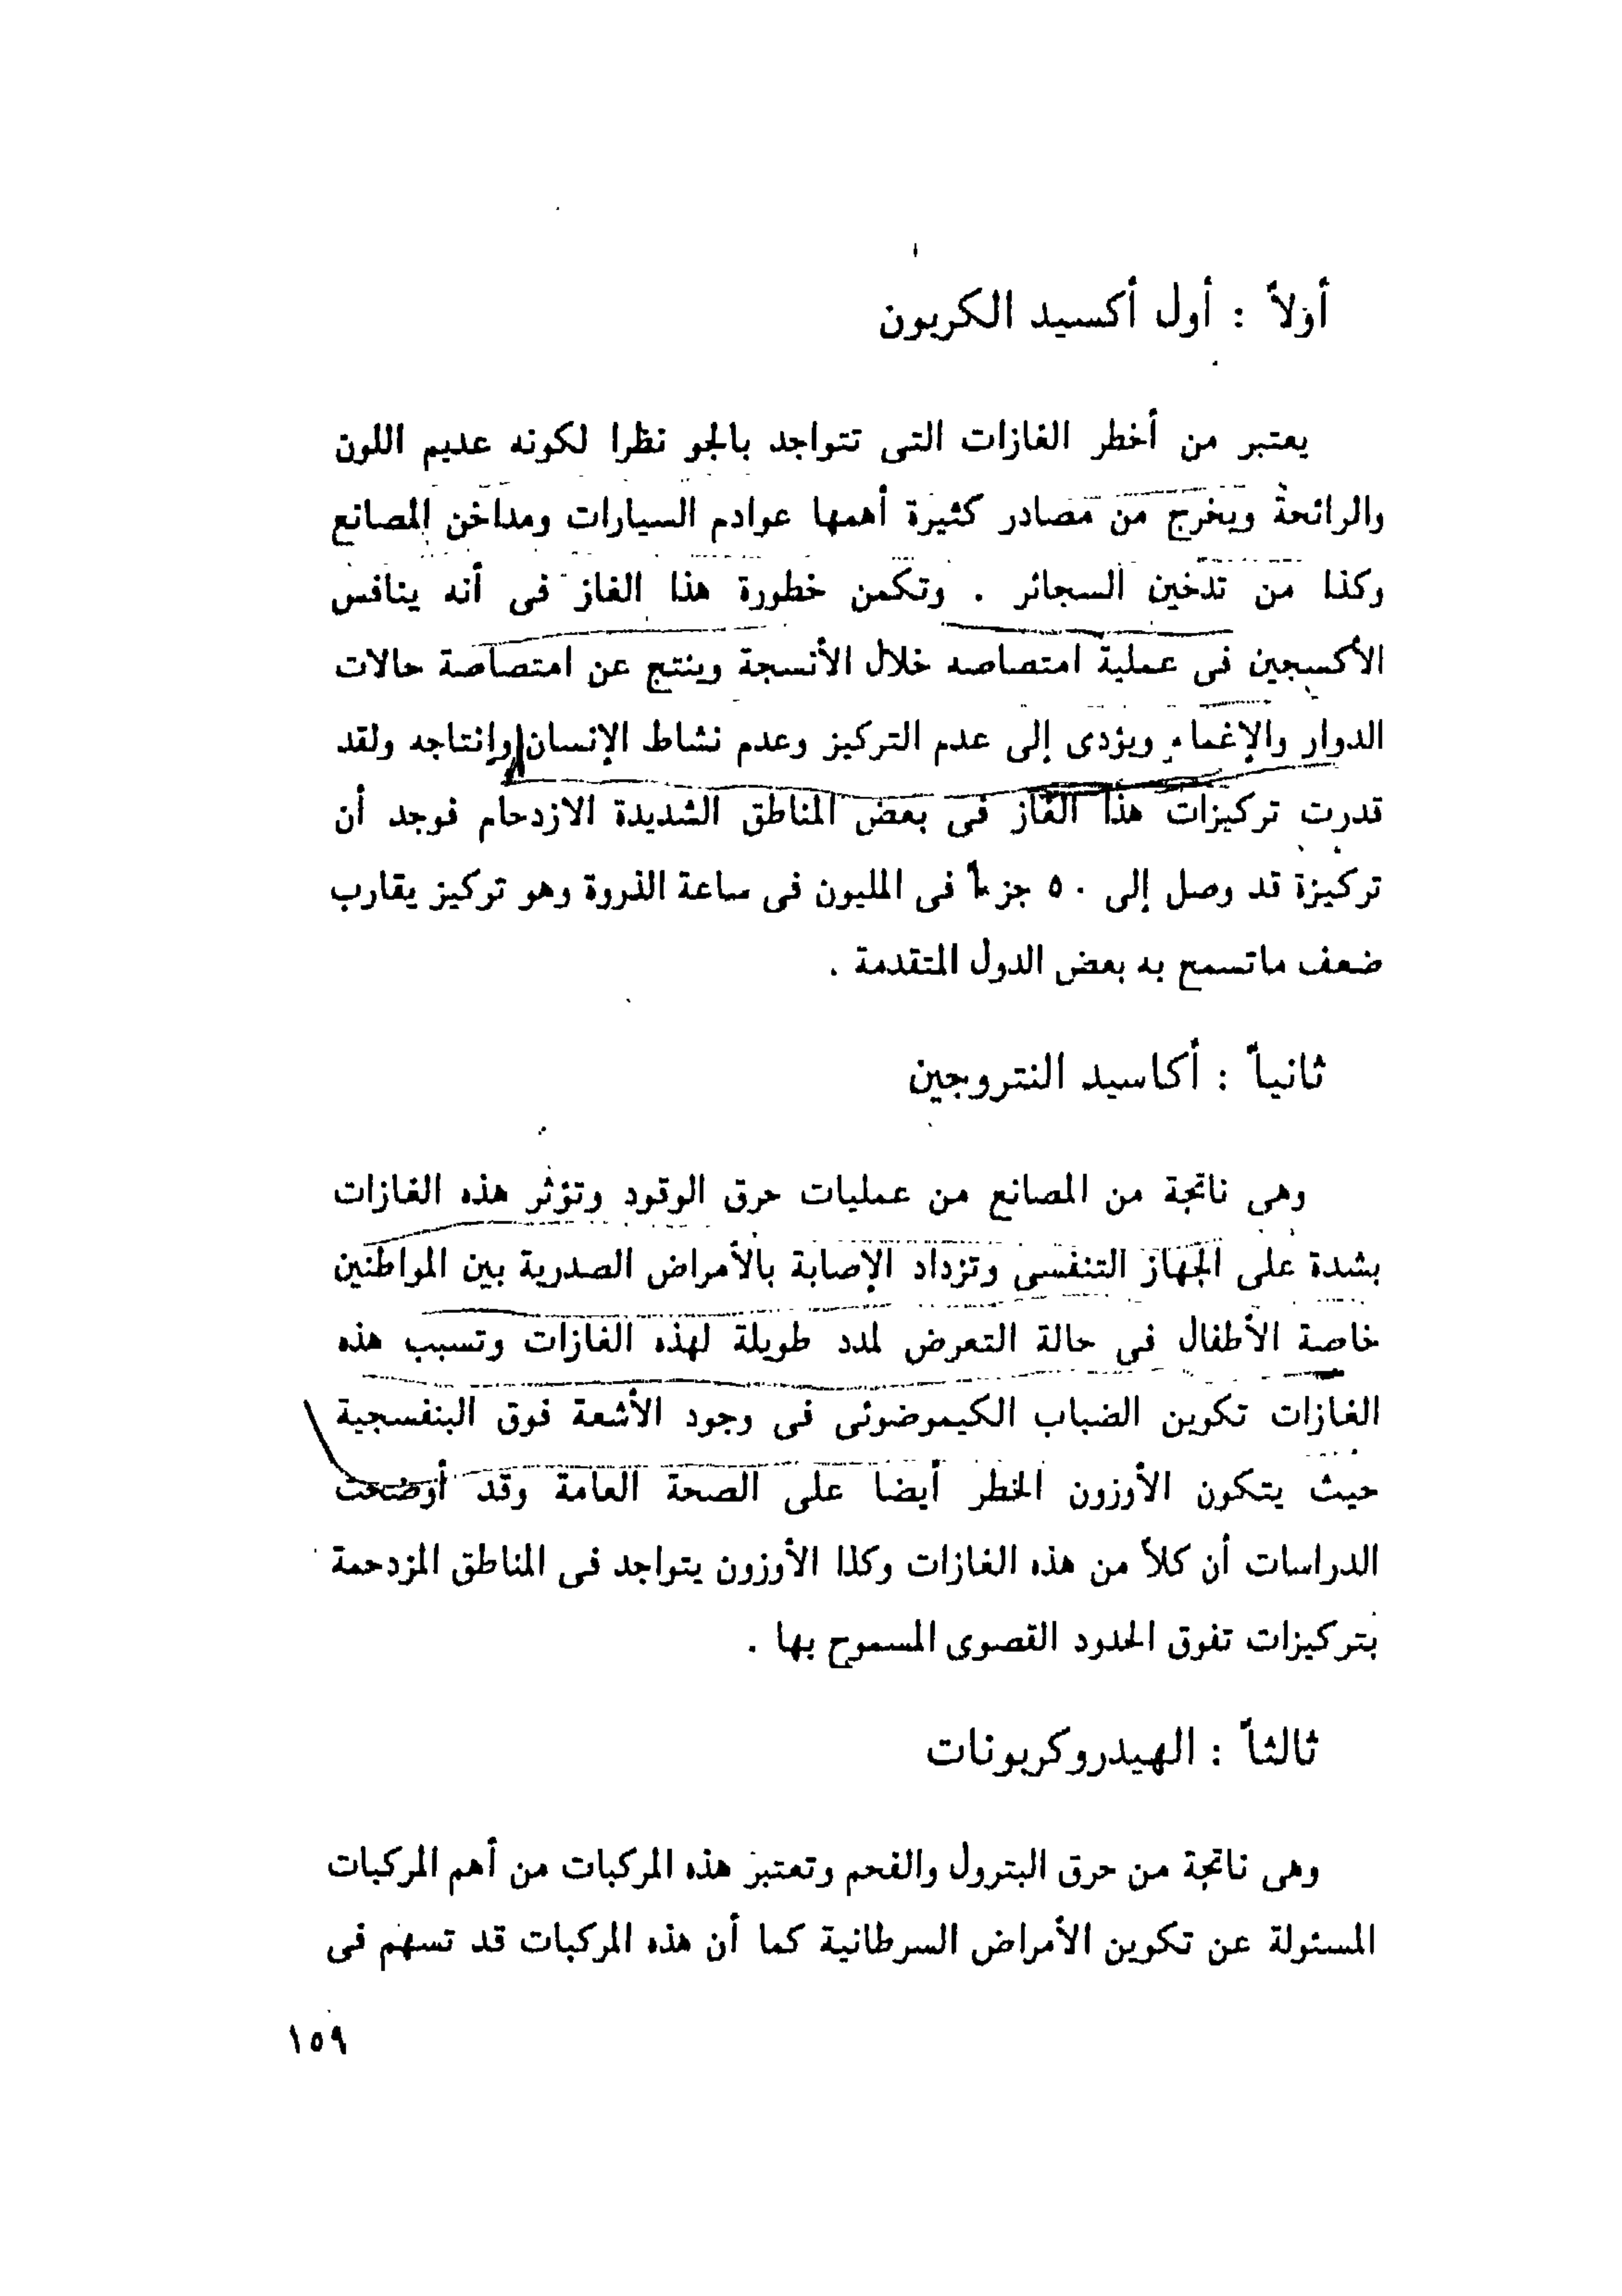 أولاً : أول أكسيد الكربون
يعتبر من أخطر الغازات التى تتواجد بالجو نظرا لكونه عديم اللون
والرائحة ويخرج من مصادر كثيرة أهمها عوادم السيارات ومداخن المصانع
وكذا من تدخين السجائر . وتكمن خطورة هذا الغاز فى أنه ينافس
الأكسجين فى عملية امتصاصه خلال الأنسجة وينتج عن امتصاصة حالات
الدوار والإغماء ويؤدى إلى عدم التركيز وعدم نشاط الإنسان وإنتاجه ولقد
قدرت تركيزات هذا الغاز فى بعض المناطق الشديدة الازدحام فوجد أن
تركيزة قد وصل إلى ٥٠ جزءاً فى المليون فى ساعة الذروة وهو تركيز يقارب
ضعف ماتسمح به بعض الدول المتقدمة .
ثانياً : أكاسيد النتروجين
وهى ناتجة من المصانع من عمليات حرق الوقود وتؤثر هذه الغازات
بشدة على الجهاز التنفسى وتزداد الإصابة بالأمراض الصدرية بين المواطنين
خاصة الأطفال فى حالة التعرض لمدد طويلة لهذه الغازات وتسبب هذه
الغازات تكوين الضباب الكيموضوئى فى وجود الأشعة فوق البنفسجية
حيث يتكون الأوزون الخطر أيضا على الصحة العامة وقد أوضحت
الدراسات أن كلاً من هذه الغازات وكذا الأوزون يتواجد فى المناطق المزدحمة
بتركيزات تفوق الحدود القصوى المسموح بها .
ثالثاً : الهيدروكربونات
وهى ناتجة من حرق البترول والفحم وتعتبر هذه المركبات من أهم المركبات
المسئولة عن تكوين الأمراض السرطانية كما أن هذه المركبات قد تسهم فى
١٥٩